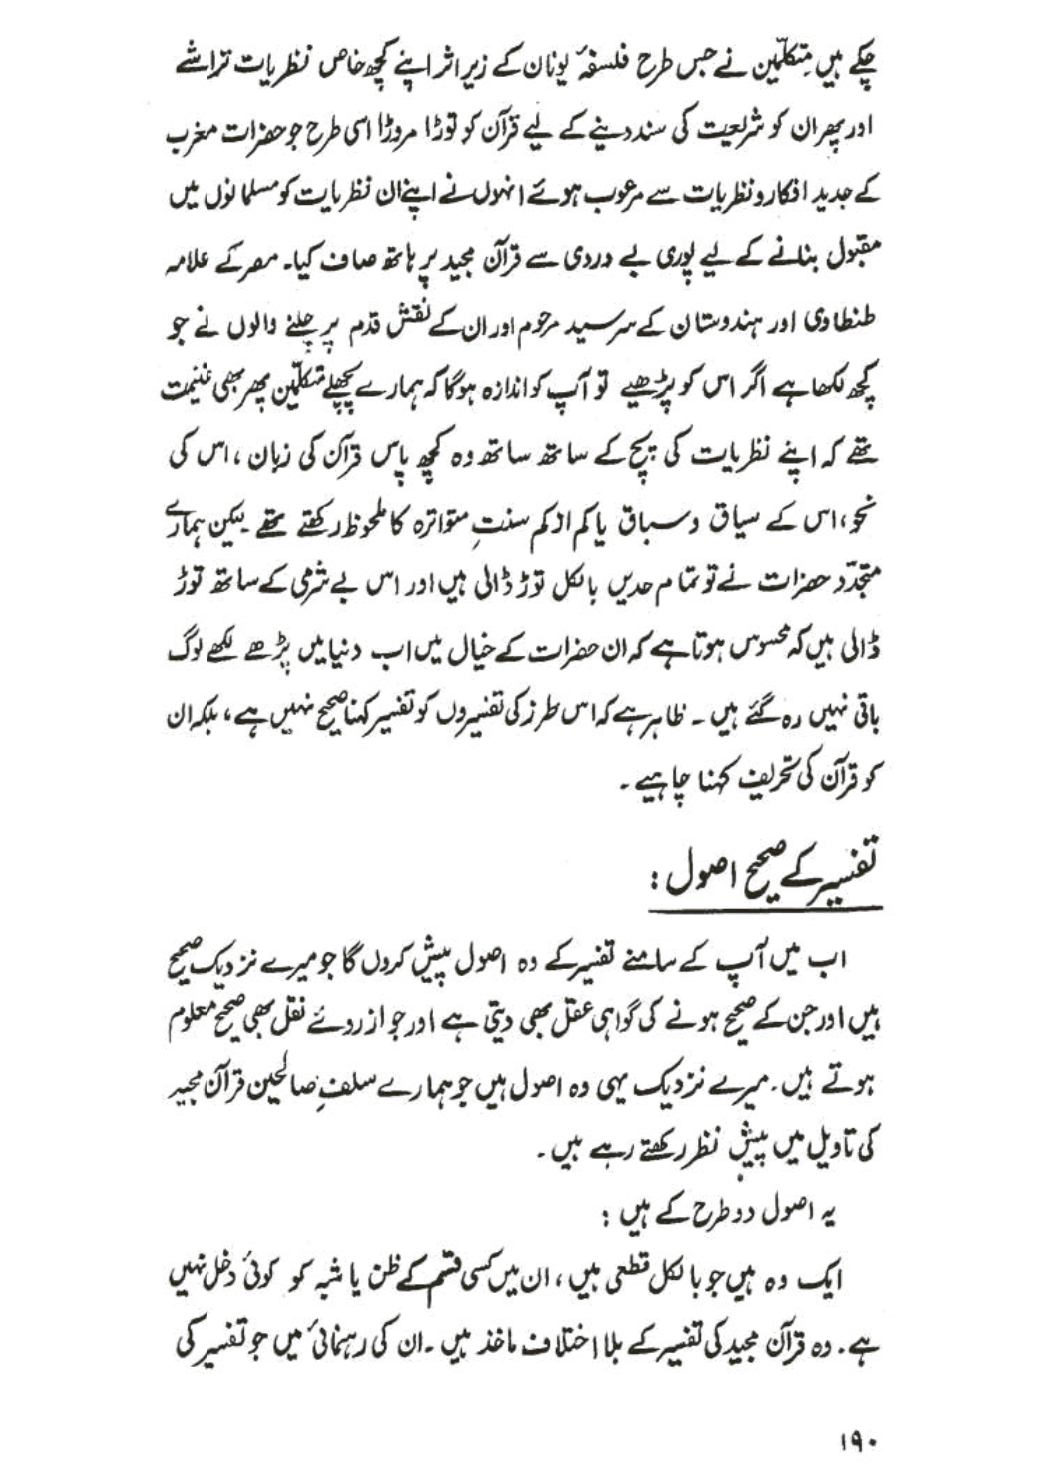 چکے ہیں متکلّمین نے جس طرح فلسفۂ یونان کے زیر اثر اپنے کچھ خاص نظریات تراشے
اور پھر ان کو شریعت کی سند دینے کے لیے قرآن کو توڑا مروڑا اسی طرح جو حضرات مغرب
کے جدید افکار و نظریات سے مرعوب ہوئے انہوں نے اپنے ان نظریات کو مسلمانوں میں
مقبول بنانے کے لیے پوری بے دردی سے قرآن مجید پر ہاتھ صاف کیا۔ مصر کے علامہ
طنطاوی اور ہندوستان کے سرسید مرحوم اور ان کے نقش قدم پر چلنے والوں نے جو
کچھ لکھا ہے اگر اس کو پڑھیے تو آپ کو اندازہ ہو گا کہ ہمارے پچھلے متکلّمین پھر بھی غنیمت
تھے کہ اپنے نظریات کی پچ کے ساتھ ساتھ وہ کچھ پاس قرآن کی زبان ، اس کی
نحو، اس کے سیاق و سباق یا کم از کم سنتِ متواترہ کا ملحوظ رکھتے تھے ۔ لیکن ہمارے
متجدّد حضرات نے تو تمام حدیں بالکل توڑ ڈالی ہیں اور اس بے شرمی کے ساتھ توڑ
ڈالی ہیں کہ محسوس ہوتا ہے کہ ان حضرات کے خیال میں اب دنیا میں پڑھے لکھے لوگ
باقی نہیں رہ گئے ہیں ۔ ظاہر ہے کہ اس طرز کی تفسیروں کو تفسیر کہنا صحیح نہیں ہے ، بلکہ ان
کو قرآن کی تحریف کہنا چاہیے ۔
تفسیر کے صحیح اصول :
اب میں آپ کے سامنے تفسیر کے وہ اصول پیش کروں گا جو میرے نزدیک صحیح
ہیں اور جن کے صحیح ہونے کی گواہی عقل بھی دیتی ہے اور جو از روئے نقل بھی صحیح معلوم
ہوتے ہیں ۔ میرے نزدیک یہی وہ اصول ہیں جو ہمارے سلفِ صالحین قرآن مجید
کی تاویل میں پیشِ نظر رکھتے رہے ہیں ۔
یہ اصول دو طرح کے ہیں :
ایک وہ ہیں جو بالکل قطعی ہیں ، ان میں کسی قسم کے ظن یا شبہ کو کوئی دخل نہیں
ہے ۔ وہ قرآن مجید کی تفسیر کے بلا اختلاف ماخذ ہیں ۔ ان کی رہنمائی میں جو تفسیر کی
۱۹۰